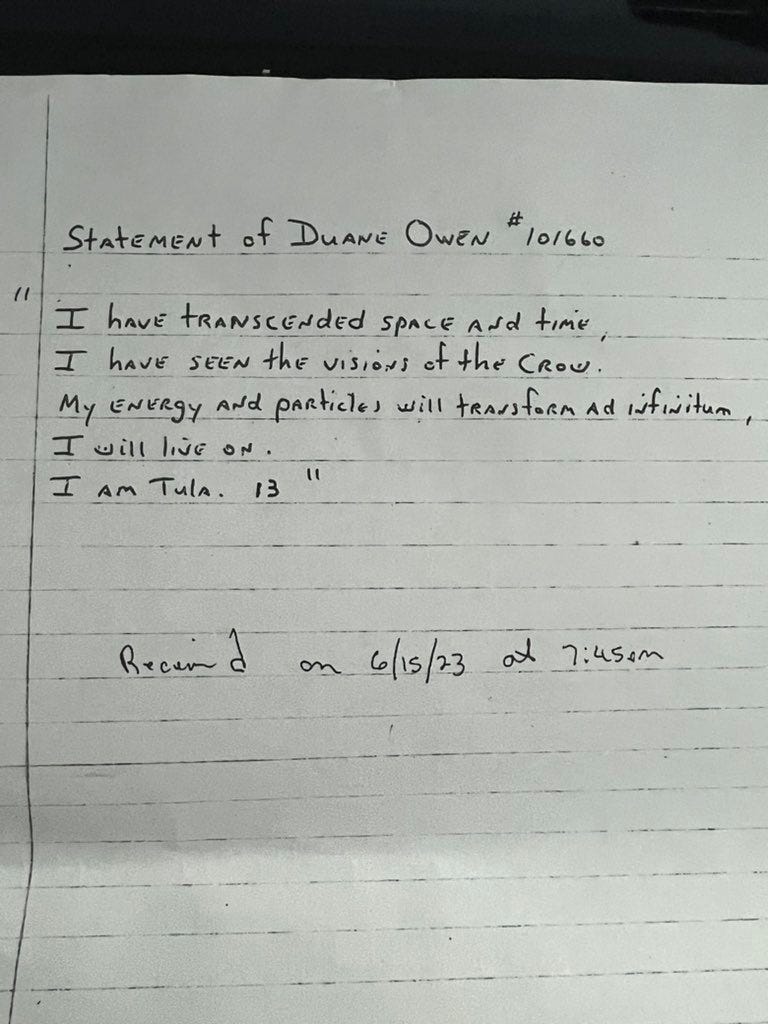 Statement of Duane Owen #101660
"I have transcended space and time,
I have seen the visions of the Crow.
My energy and particles will transform ad infinitum,
I will live on.
I am Tula. 13"
Received on 6/15/23 at 7:45am